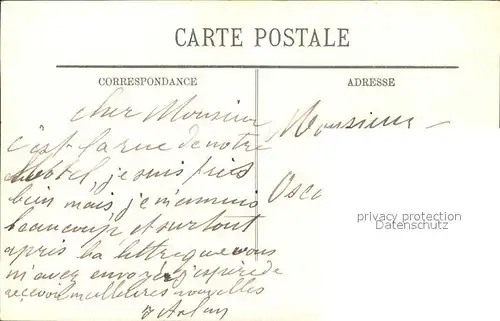 CARTE POSTALE
CORRESPONDANCE
ADRESSE
cher Monsieur
c'est la rue de notre
hotel, je suis très
bien mais je m'ennuie
beaucoup et surtout
après la lettre que vous
m'avez envoyé j'espère de
recevoir meilleures nouvelles
Monsieur
Osca
privacy protection
Datenschutz